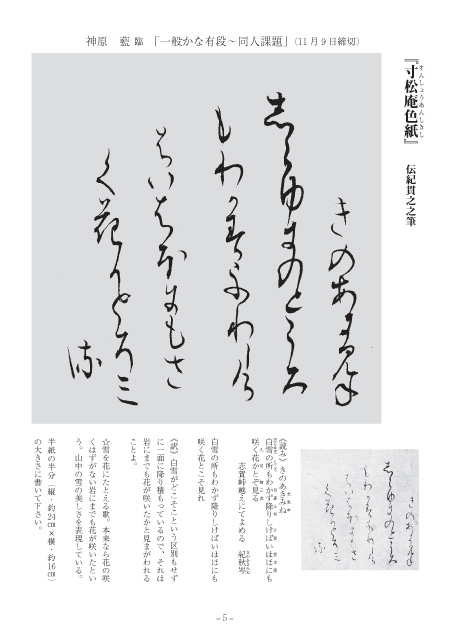 神原　藍 臨 「一般かな有段～同人課題」（11月9日締切）
『寸松庵色紙』
すんしょうあんしきし
伝紀貫之之筆
きのあきみね
しらゆきのところ
もわかすふりし
はいはほにもさ
く花
《読み》きのあきみね
白雪の所もわかず降りしけばいはほにも
咲く花かとぞ見る
志賀峠越えにてよめる　紀秋岑
白雪の所もわかず降りしけばいはほにも
咲く花とこそ見れ
《訳》白雪がどこそこという区別もせず
に一面に降り積もっているので、それは
岩にまでも花が咲いたかと見まがわれる
ことよ。
☆雪を花にたとえる歌。本来なら花の咲
くはずがない岩にまでも花が咲いたとい
う。山中の雪の美しさを表現している。
半紙の半分（縦・約24㎝×横・約16㎝）
の大きさに書いて下さい。
－5－